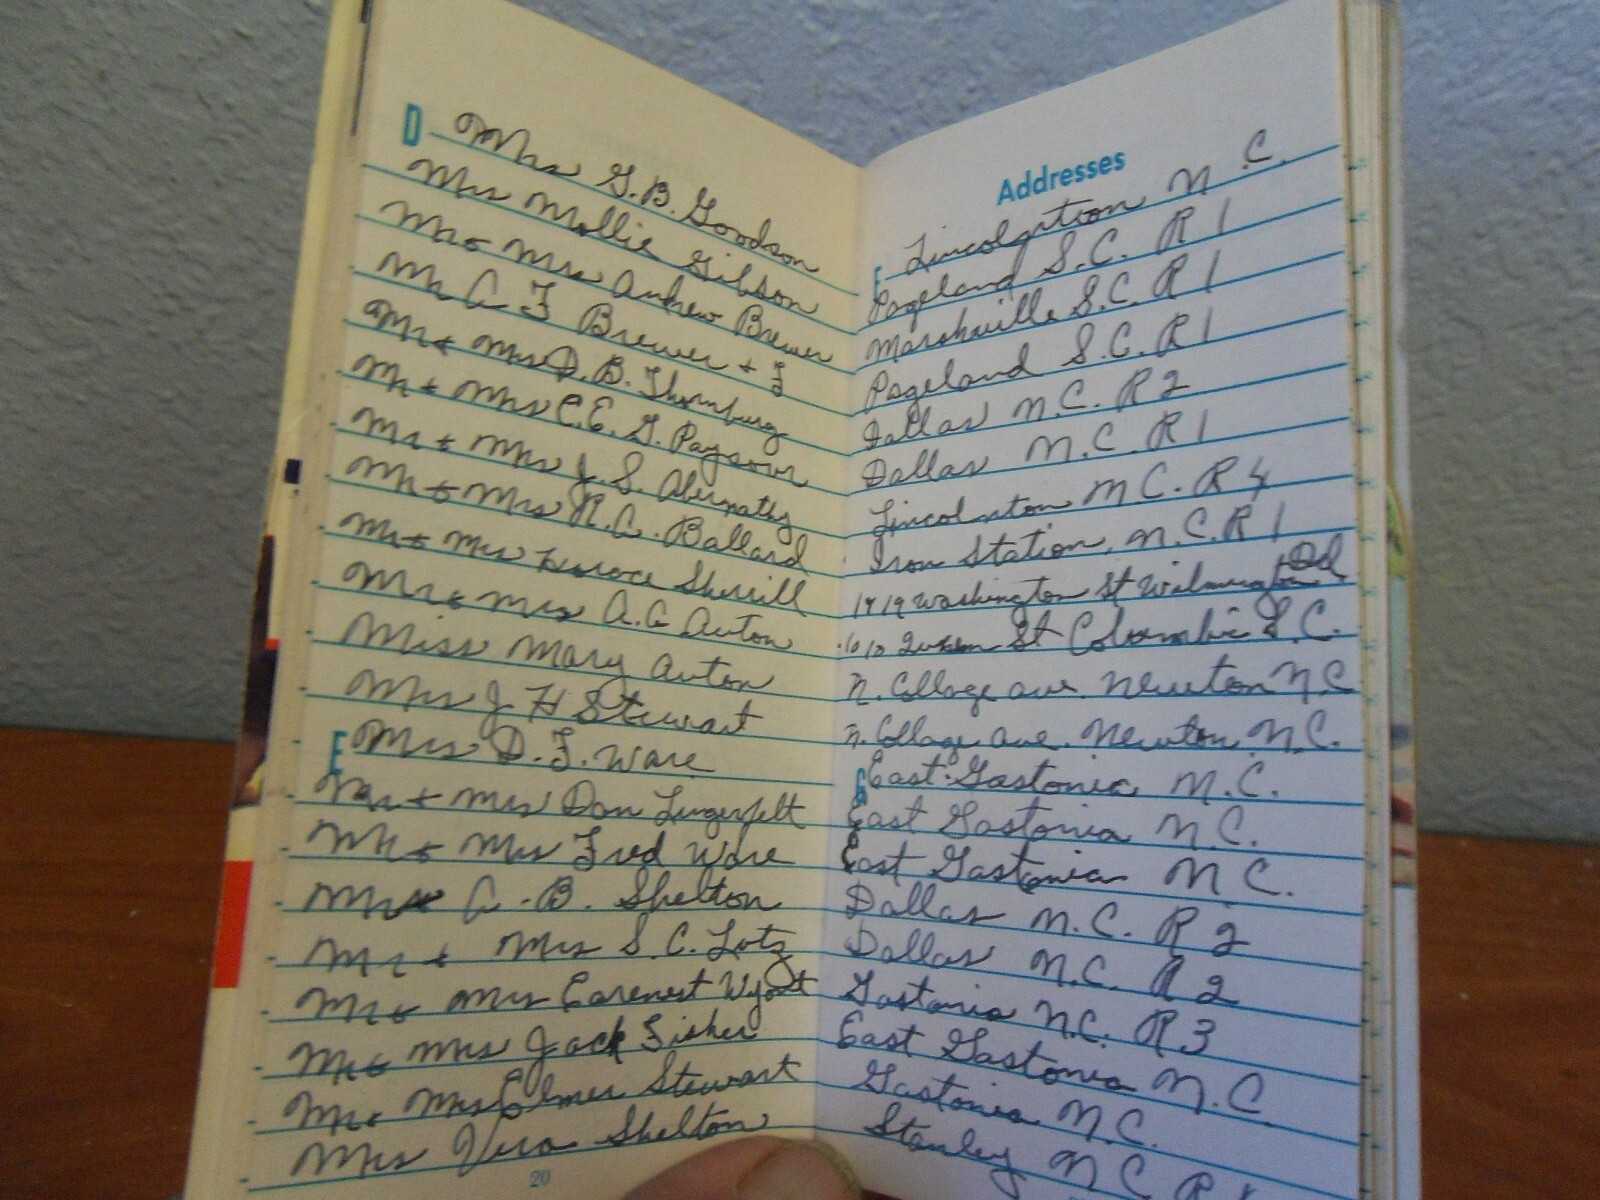 D Mrs G. B. Goodson
Mrs Mollie Gibson
Mr & Mrs Andrew Brewer
Mr C F Brewer + F
Mr & Mrs D. B. Thornburg
Mr + Mrs C. E. G. Paysour
Mr + Mrs J. S. Abernathy
Mr & Mrs R. A. Ballard
Mr & Mrs Horace Sherrill
Mr & Mrs A. C Auton
Miss Mary Auton
Mrs J H Stewart
E Mrs D. F. Ware
Mr + Mrs Dan Lingerfelt
Mr & Mrs Fred Ware
Mrs C. B. Shelton
Mr + Mrs S. C. Lotz
Mr & Mrs Earenest Wyont
Mr & Mrs Jack Fisher
Mr & Mrs Elmer Stewart
Mrs Vera Shelton
20
Addresses
F Lincolnton N C.
Pageland S.C. R 1
Marshville S.C. R 1
Pageland S.C. R 1
Dallas N.C. R 2
Dallas N.C. R 1
Lincolnton N C. R 4
Iron Station, N.C. R 1
1719 Washington St Wilmington Del
1010 Queen St Columbia S.C.
N. College ave. Newton N C
N. Collage ave. Newton, N.C.
G East Gastonia N.C.
East Gastonia N.C.
East Gastonia N C.
Dallas N.C. R 2
Dallas N.C. R 2
Gastonia N.C. R 3
East Gastonia N.C
Gastonia N.C.
Stanley N C R